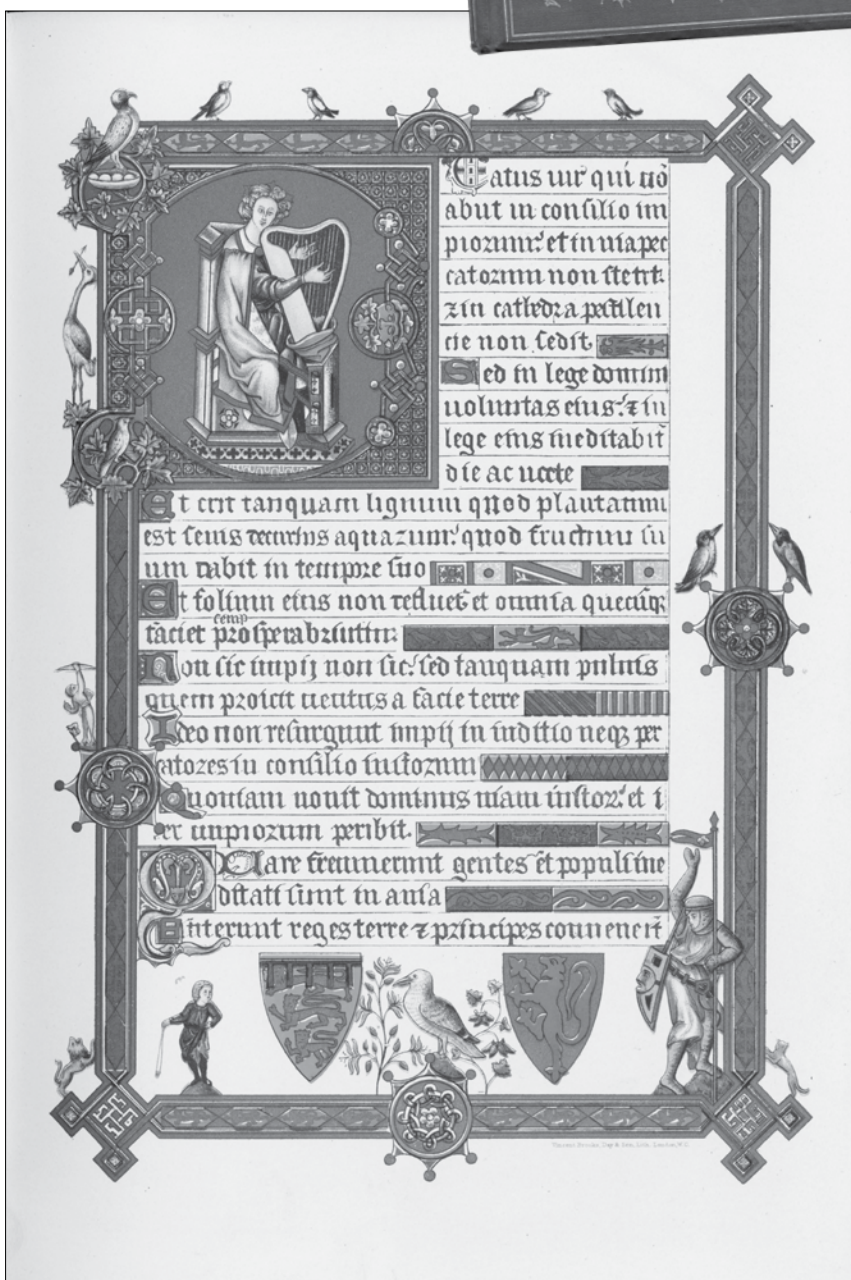 Eatus uir qui nō
abut in consilio im
piorum: et in uia pec
catorum non stetit:
⁊ in cathedra pestilen
cie non sedit.
Sed in lege domini
uoluntas eius: ⁊ in
lege eius meditabit̄
die ac nocte
Et erit tanquam lignum quod plantatum
est secus decursus aquarum: quod fructum su
um dabit in tempore suo
Et folium eius non defluet: et omnia quecūq;
semp
faciet prosperabuntur:
Non sic impij non sic: sed tanquam puluis
quem proicit uentus a facie terre
Ideo non resurgunt impij in iuditio neq; pec
catores in consilio iustorum
Quoniam nouit dominus uiam iustor: et i
ter impiorum peribit.
Quare fremuerunt gentes et populi me
ditati sunt in ania
Astiterunt reges terre ⁊ principes conuenerūt
Vincent Brooks, Day & Son, Lith. London, W.C.